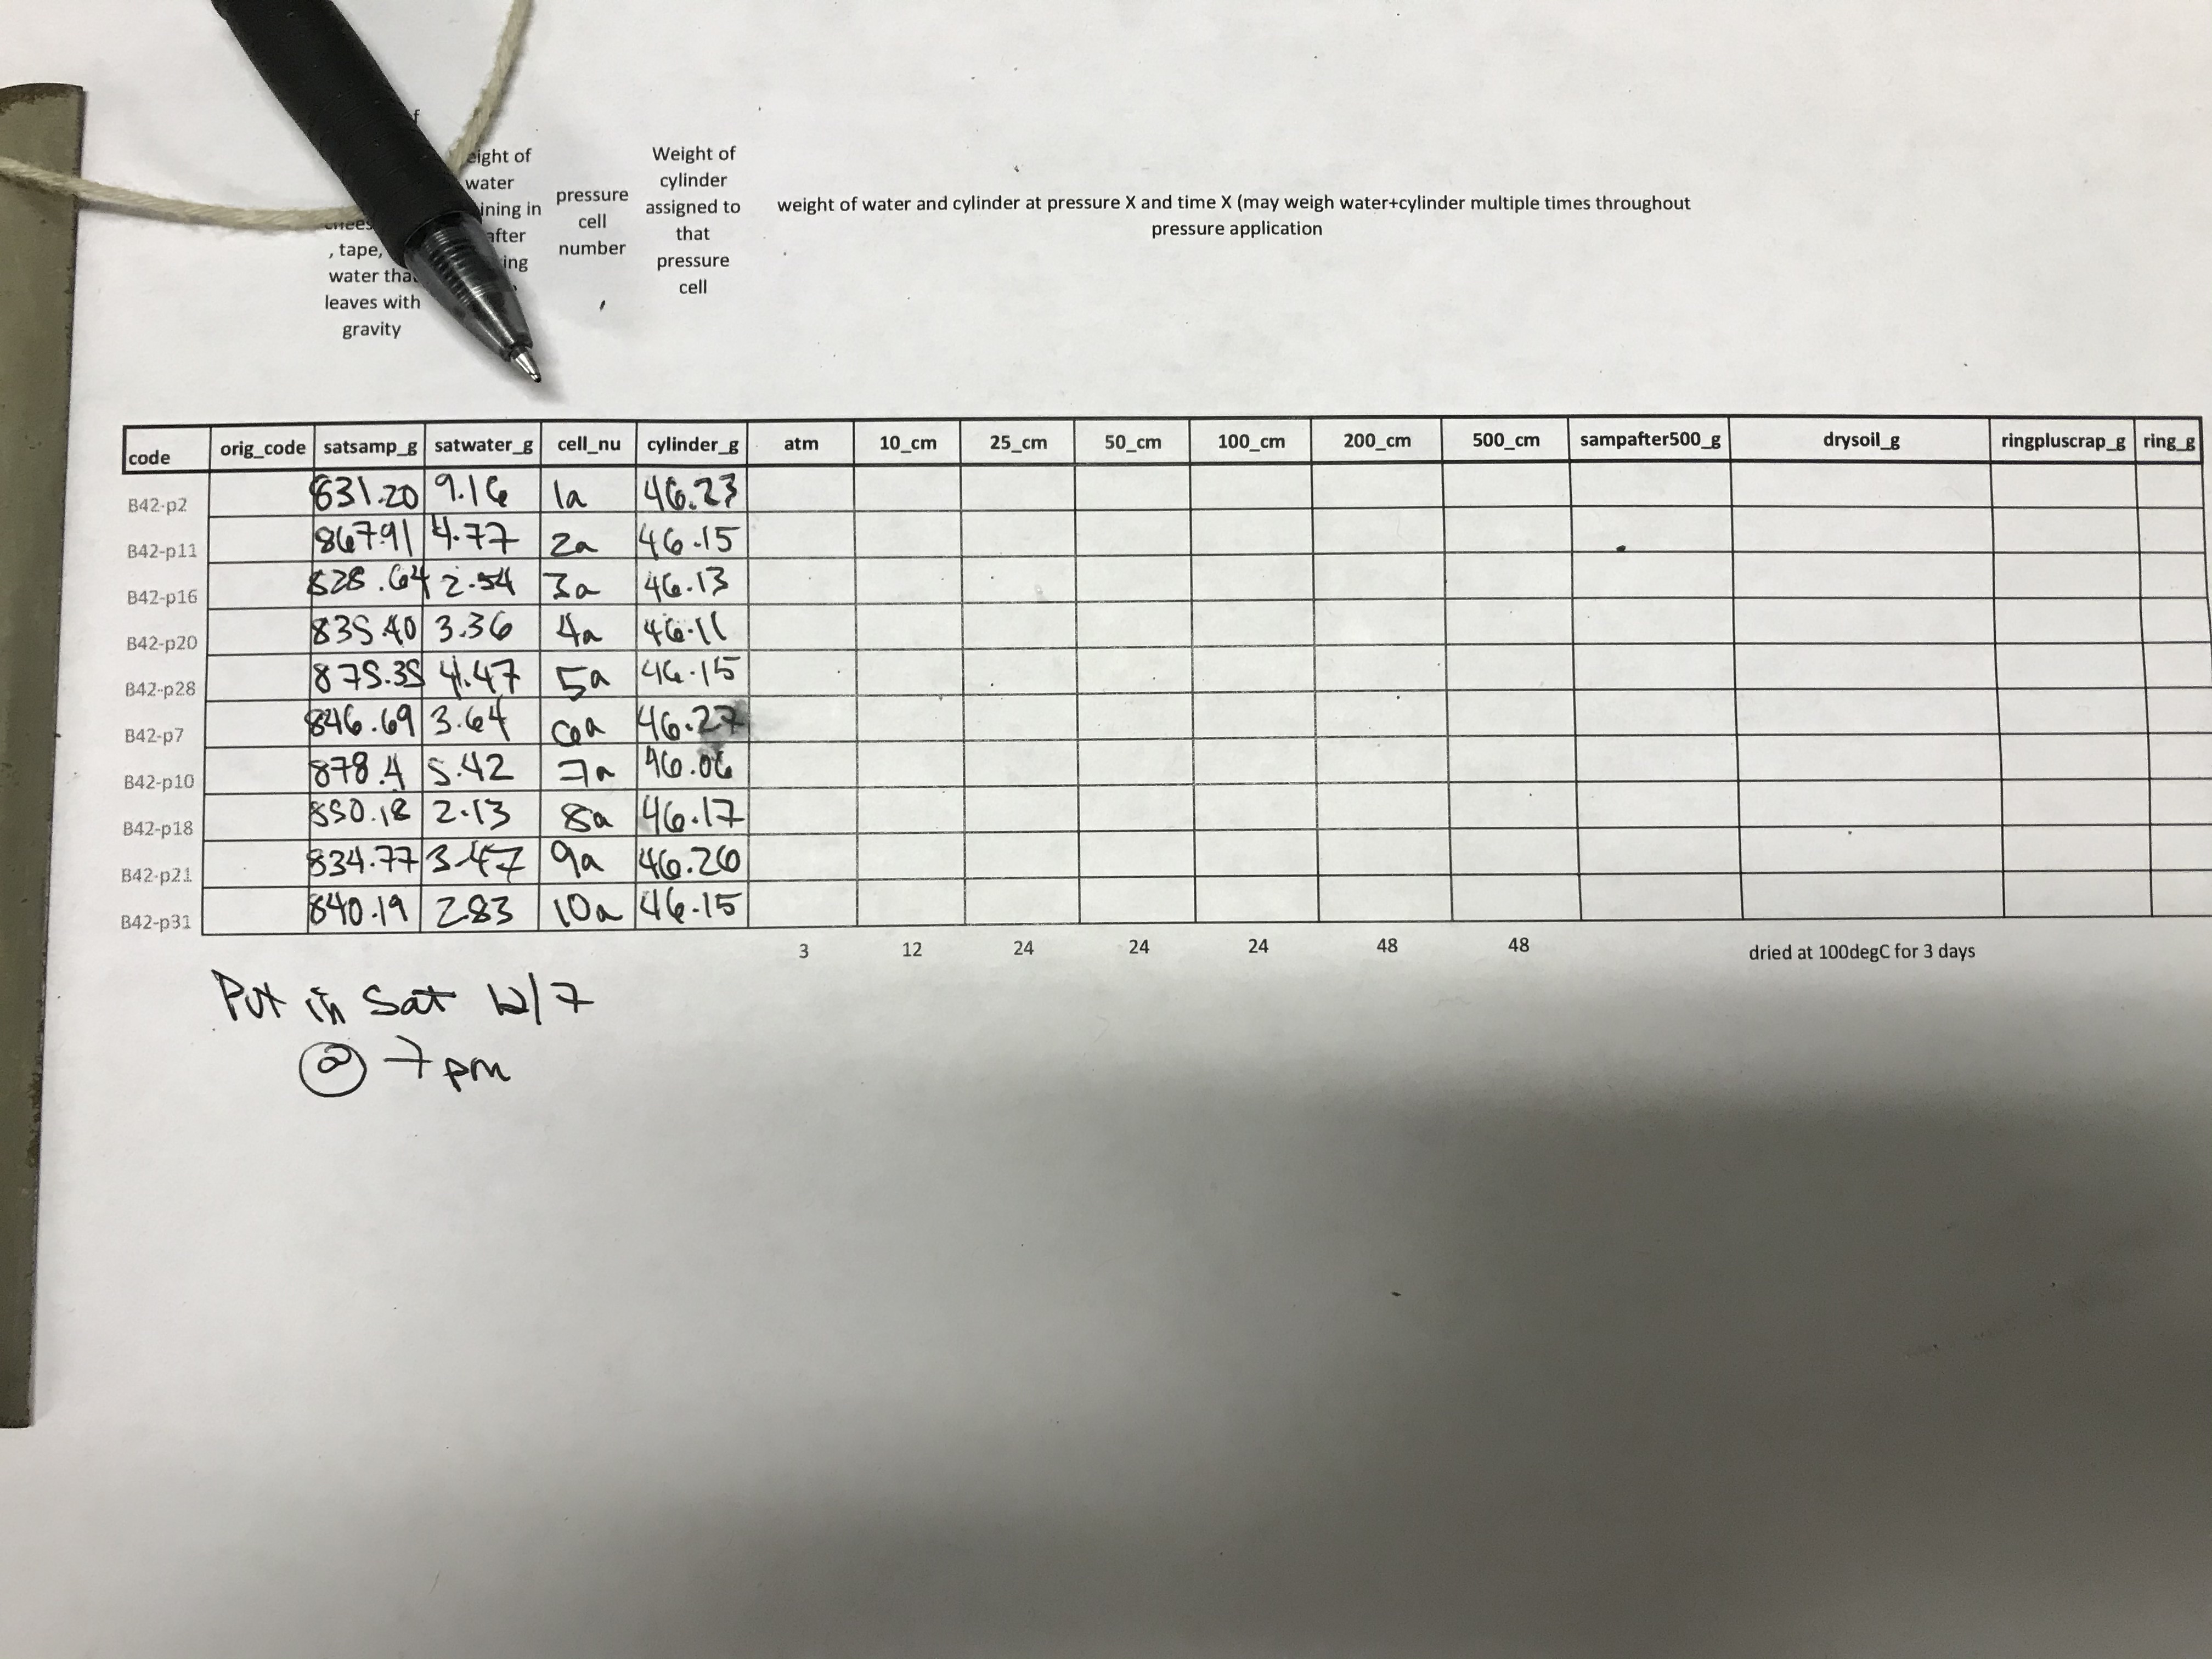 f
eight of
water
ining in
after
ing
, tape,
water tha
leaves with
gravity
pressure
cell
number
Weight of
cylinder
assigned to
that
pressure
cell
weight of water and cylinder at pressure X and time X (may weigh water+cylinder multiple times throughout
pressure application
code orig_code satsamp_g satwater_g cell_nu cylinder_g atm 10_cm 25_cm 50_cm 100_cm 200_cm 500_cm sampafter500_g drysoil_g ringpluscrap_g ring_g
B42-p2 831.20 9.16 1a 46.23
B42-p11 867.91 4.77 2a 46.15
B42-p16 828.64 2.54 3a 46.13
B42-p20 835.40 3.36 4a 46.11
B42-p28 875.35 4.47 5a 46.15
B42-p7 846.69 3.64 6a 46.27
B42-p10 878.4 5.42 7a 46.06
B42-p18 850.18 2.13 8a 46.17
B42-p21 834.77 3.47 9a 46.26
B42-p31 840.19 2.83 10a 46.15
3 12 24 24 24 48 48 dried at 100degC for 3 days
Put in Sat 12/7
@ 7pm